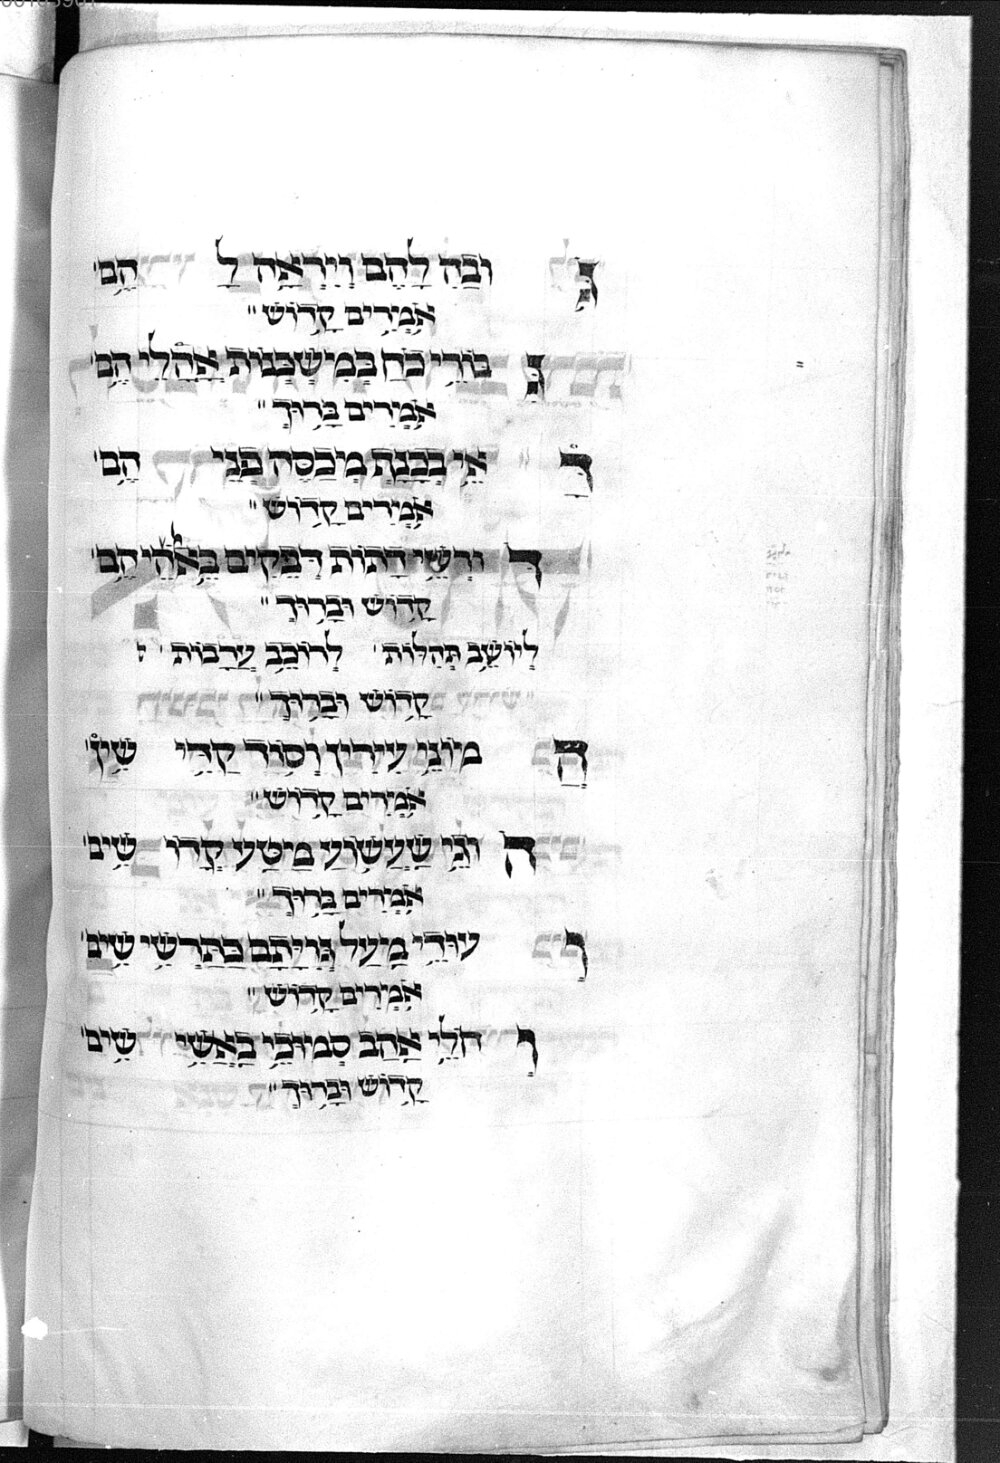 גּ וּבַהּ לָהֶם וְיִרְאָה לָ הֶם׳
אֹמְרִים קָדוֹשׁ״
גִּ בּוֹרֵי כֹחַ בְּמִישְׁכְּנוֹת אָהֳלֵי הֶם׳
אֹמְרִים בָּרוּךְ״
רָ אֵי בְּכָנָף מְיכַסֵּה פְּנֵי הֶם׳
אֹמְרִים קָדוֹשׁ״
דּ וֹרְשֵׁי דָתוֹת דְּבֵקִים בֵּאלֹהֵי הֶם׳
קָדוֹשׁ וּבָרוּךְ״
לְיוֹשֵׁב תְּהִלּוֹת׳ לְרוֹכֵב עֲרָבוֹת׳
קָדוֹשׁ וּבָרוּךְ״
הֲ מוֹנֵי עִירִין וְסוֹד קַדִּי שִׁין׳
אֹמְרִים קָדוֹשׁ״
ה וֹגֵי שַׁעֲשׁוּעַ מַיטַּע קְדוֹ שִׁים׳
אֹמְרִים בָּרוּךְ״
עוֹרֵי מֵעַל גְּוִיָּתָם כְּתַרְשִׁי שִׁים׳
אֹמְרִים קָדוֹשׁ״
חוֹלֵי אַהַב סְמוּכֵי בָּאֲשִׁי שִׁים׳
קָדוֹשׁ וּבָרוּךְ״